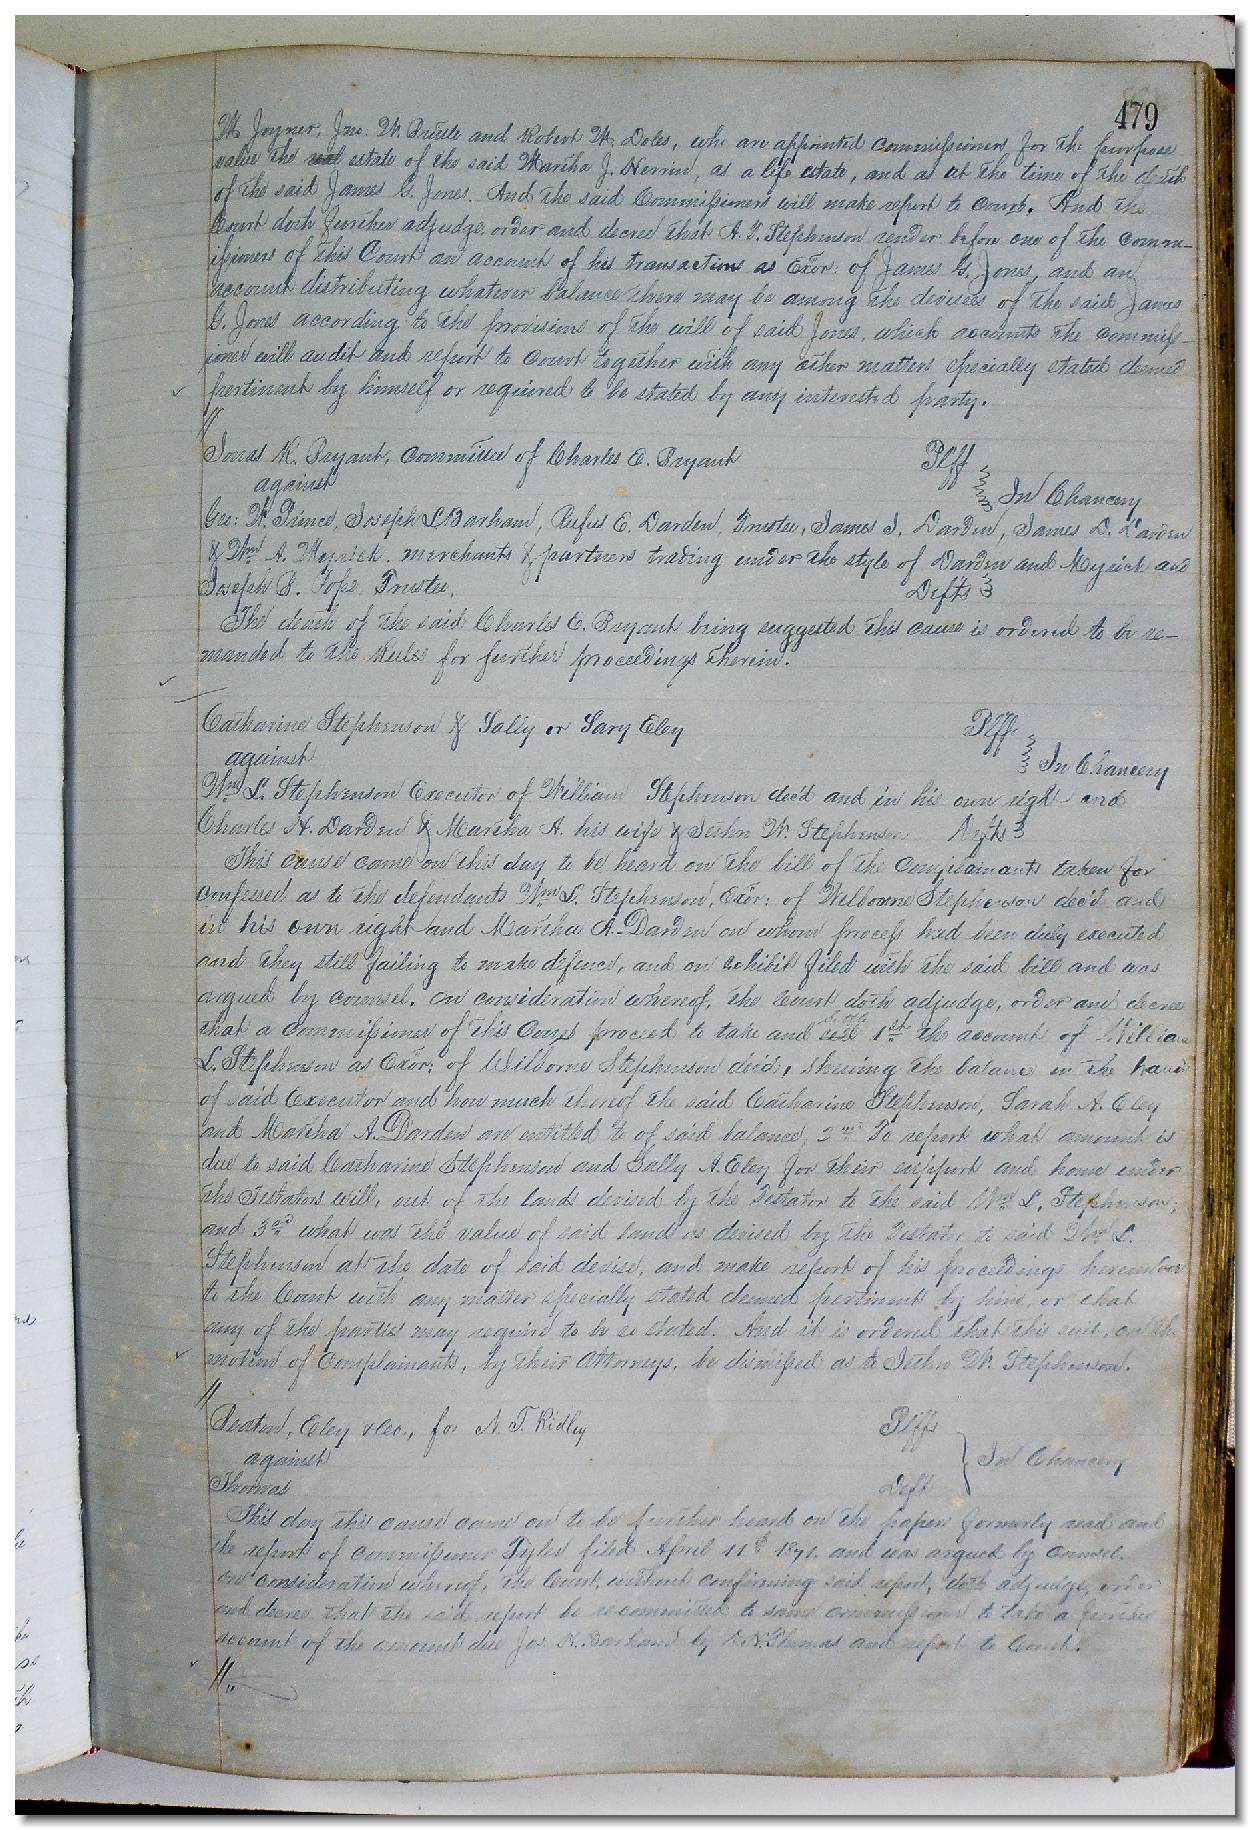 479
W. Joyner, Jno. W. Pretlo and Robert W. Doles, who are appointed commissioners for the purpose
value the real estate of the said Martha J. Herrin, as a life estate, and as at the time of the death
of the said James G. Jones. And the said Commissioners will make report to Court. And the
Court doth further adjudge, order and decree that A. T. Stephenson render before one of the comm-
issioners of this Court an account of his transactions as Exor: of James G. Jones, and an
account distributing whatever balance there may be among the devisees of the said James
G. Jones according to the provisions of the will of said Jones, which accounts the commiss-
ioner will audit and report to Court together with any other matters specially stated deemed
pertinent by himself or required to be stated by any interested party.
Jonas R. Bryant, committee of Charles E. Bryant Plff
against In Chancery
Geo: W. Prince, Joseph L Barham, Rufus E. Darden, Trustee, James J. Darden, James D. Darden
& Wm A. Myrick, merchants & partners trading under the style of Darden and Myrick and
Joseph B. Pope, Trustee, Defts
The death of the said Charles E. Bryant being suggested this cause is ordered to be re-
manded to the Rules for further proceedings therein.
Catharine Stephenson & Sally or Sary Eley Plffs
against In Chancery
Wm L. Stephenson Executor of William Stephenson dec'd and in his own right and
Charles H. Darden & Martha A. his wife & Jethro W. Stephenson Defts
This cause came on this day to be heard on the bill of the complainants taken for
confessed as to the defendants Wm L. Stephenson, Exor: of Wilborne Stephenson dec'd and
in his own right and Martha A. Darden on whom process had been duly executed
and they still failing to make defence, and on exhibit filed with the said bill and was
argued by counsel. On consideration whereof, the Court doth adjudge, order and decree
that a commissioner of this Court proceed to take and settle 1st the account of William
L. Stephenson as Exor: of Wilborne Stephenson dec'd, shewing the balance in the hands
of said Executor and how much thereof the said Catharine Stephenson, Sarah A. Eley
and Martha A. Darden are entitled to of said balance, 2nd To report what amount is
due to said Catharine Stephenson and Sally A. Eley for their support and home under
the Testators will, out of the lands devised by the Testator to the said Wm L. Stephenson,
and 3rd what was the value of said lands as devised by the Testator to said Wm L.
Stephenson at the date of said devise, and make report of his proceedings hereunder
to the Court with any matter specially stated deemed pertinent by him, or that
any of the parties may require to be so stated. And it is ordered that this suit, on the
motion of complainants, by their Attorneys, be dismissed as to Jethro W. Stephenson.
Beaton, Eley & Co., for N. T. Ridley Plffs
against In Chancery
Thomas Deft
This day this cause came on to be further heard on the papers formerly read and
the report of commissioner Tyler filed April 11th 1871. and was argued by counsel.
on consideration whereof, the Court, without confirming said report, doth adjudge, order
and decree that the said report be recommitted to same commissioner to take a further
account of the amount due Jos. H. Barham by Thomas and report to Court.